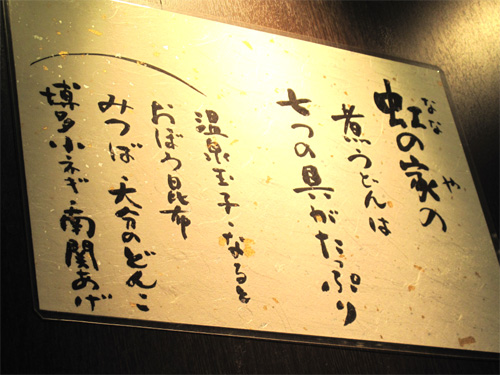 虹の家の
なな
や
煮うどんは
七つの具がたっぷり
温泉玉子・なると
おぼろ昆布
みつば・大分のどんこ
博多小ネギ・南関あげ